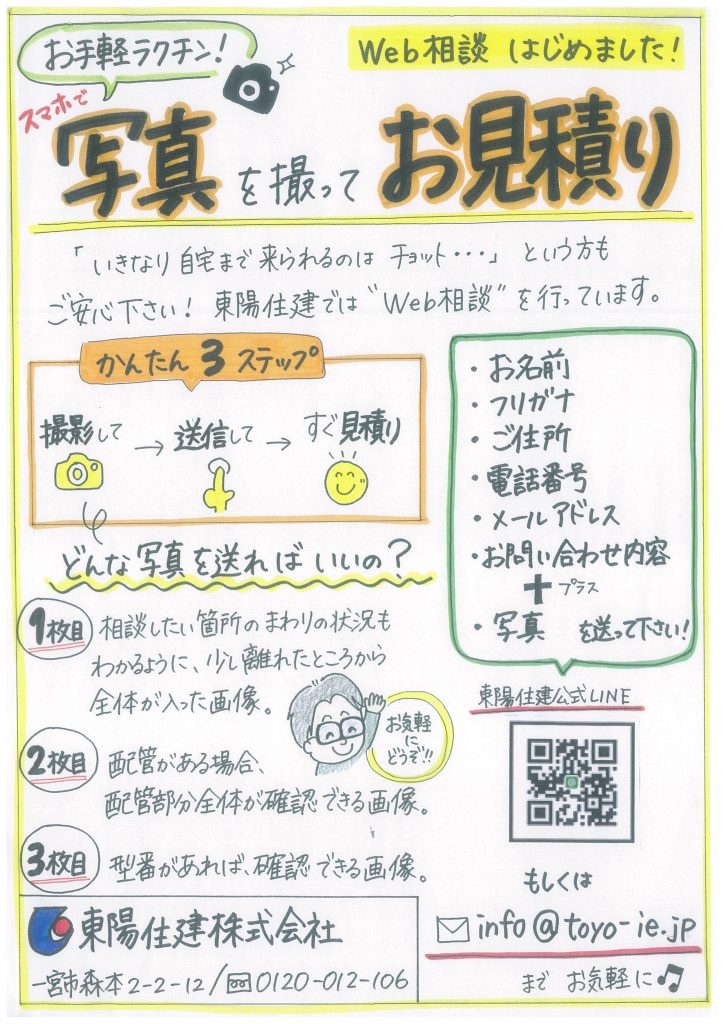 お手軽ラクチン!
Web相談 はじめました!
スマホで
写真を撮ってお見積り
「いきなり自宅まで来られるのは チョット・・・」という方も
ご安心下さい!東陽住建では"Web相談"を行っています。
かんたん3ステップ
撮影して→送信して→すぐ見積り
どんな写真を送ればいいの?
1枚目
相談したい箇所のまわりの状況も
わかるように、少し離れたところから
全体が入った画像。
お気軽
に
どうぞ!!
2枚目
配管がある場合、
配管部分全体が確認できる画像。
3枚目
型番があれば、確認できる画像。
・お名前
・フリガナ
・ご住所
・電話番号
・メールアドレス
・お問い合わせ内容
+プラス
・写真 を送って下さい!
東陽住建公式LINE
もしくは
info@toyo-ie.jp
まで お気軽に♫
東陽住建株式会社
一宮市森本2-2-12/0120-012-106